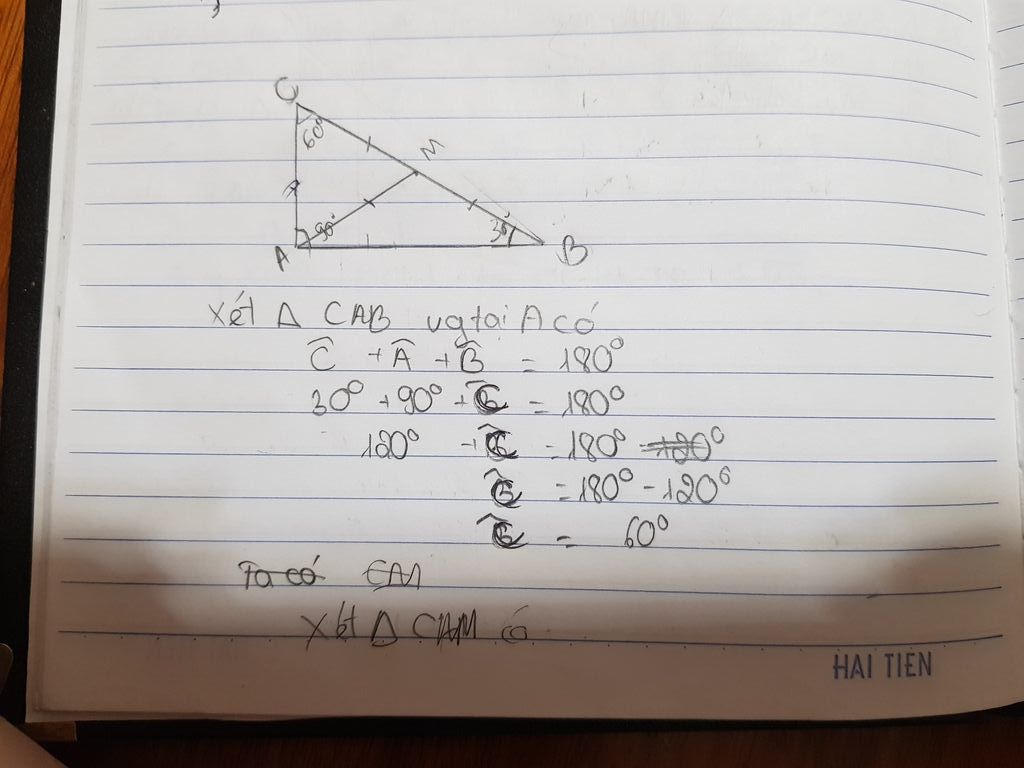 C
60°
M
A
90°
30°
B
Xét Δ CAB vg tại A có
Ĉ + Â + B̂ = 180°
30° + 90° + Ĉ = 180°
120° + Ĉ = 180° - 120°
Ĉ = 180° - 120°
Ĉ = 60°
Ta có
Xét Δ CAM có
HAI TIEN